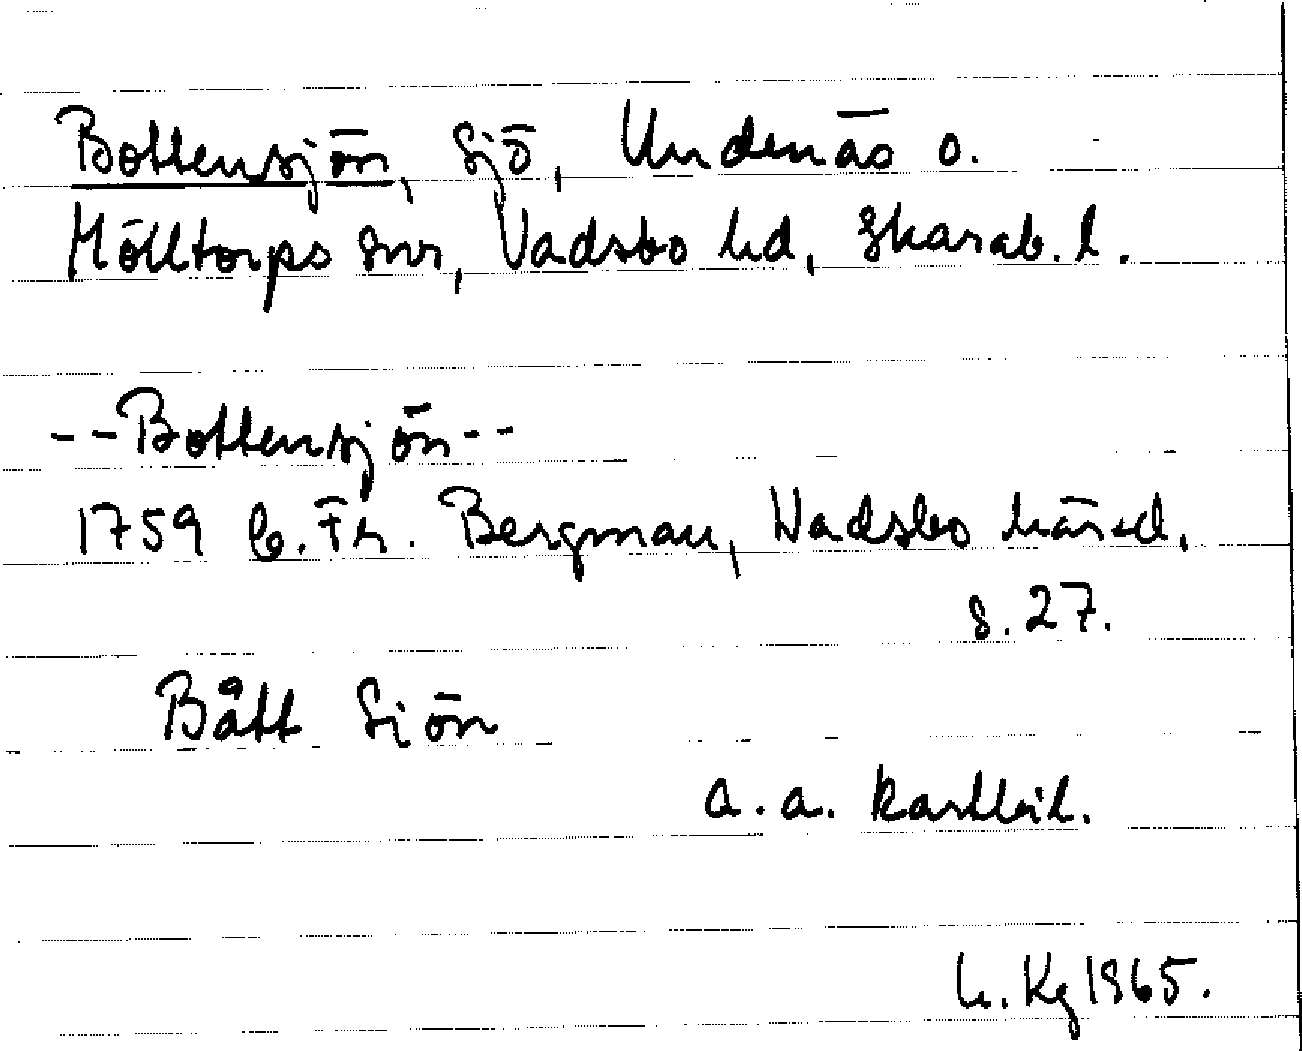 Bottensjön, sjö, Undenäs o.
Mölltorps snr, Vadsbo hd, Skarab. l.
--Bottensjön--
1759 C. Fr. Bergman, Wadsbo härad,
s. 27.
Bått Siön
a. a. kartbil.
L. Kg 1965.